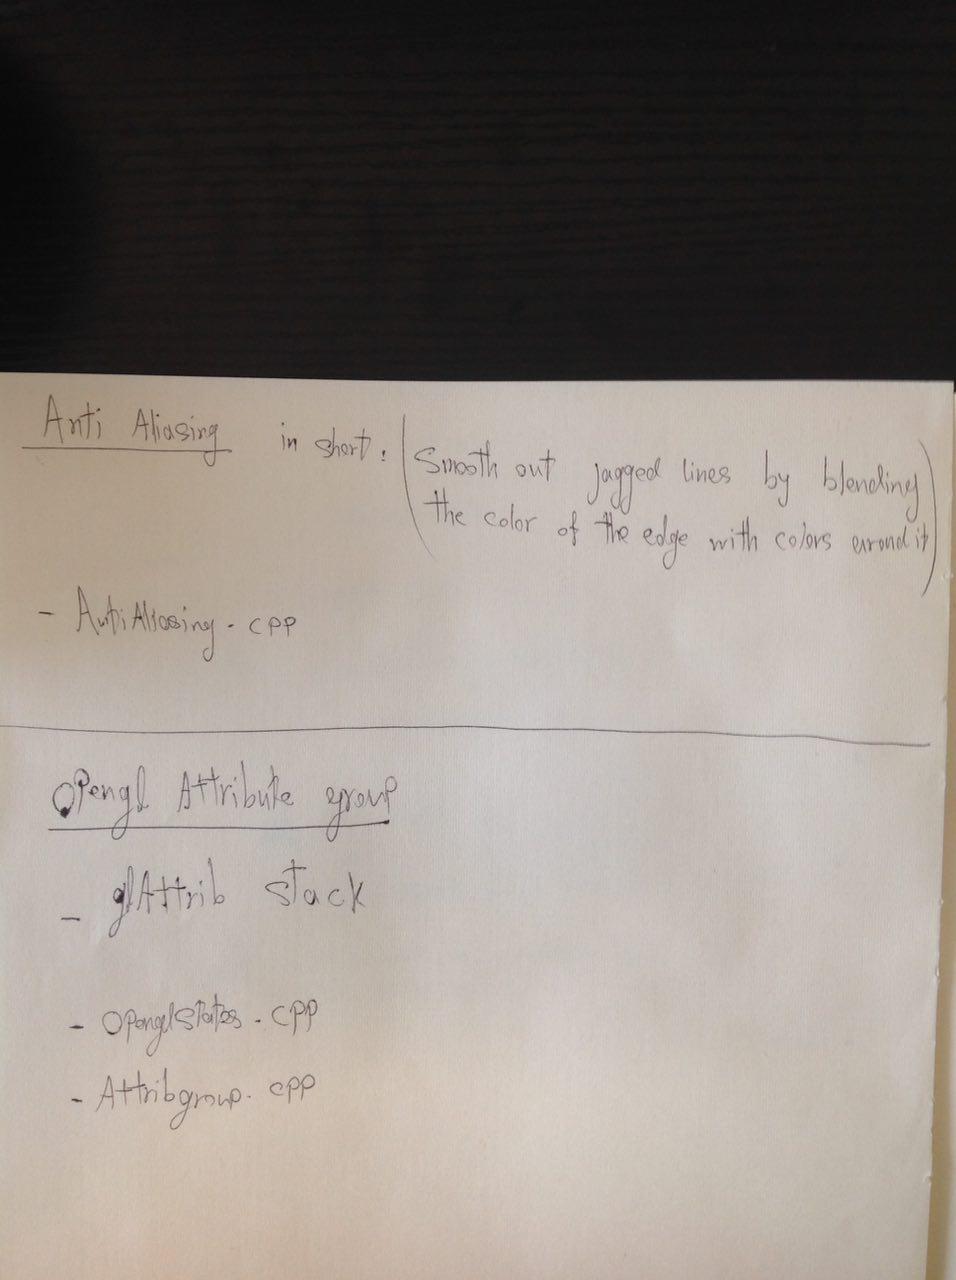 Anti Aliasing in short: (Smooth out jagged lines by blending
the color of the edge with colors around it)
- AntiAliasing.cpp
OPengl Attribute group
- glAttrib stack
- OPenglStates.cpp
- Attribgroup.cpp